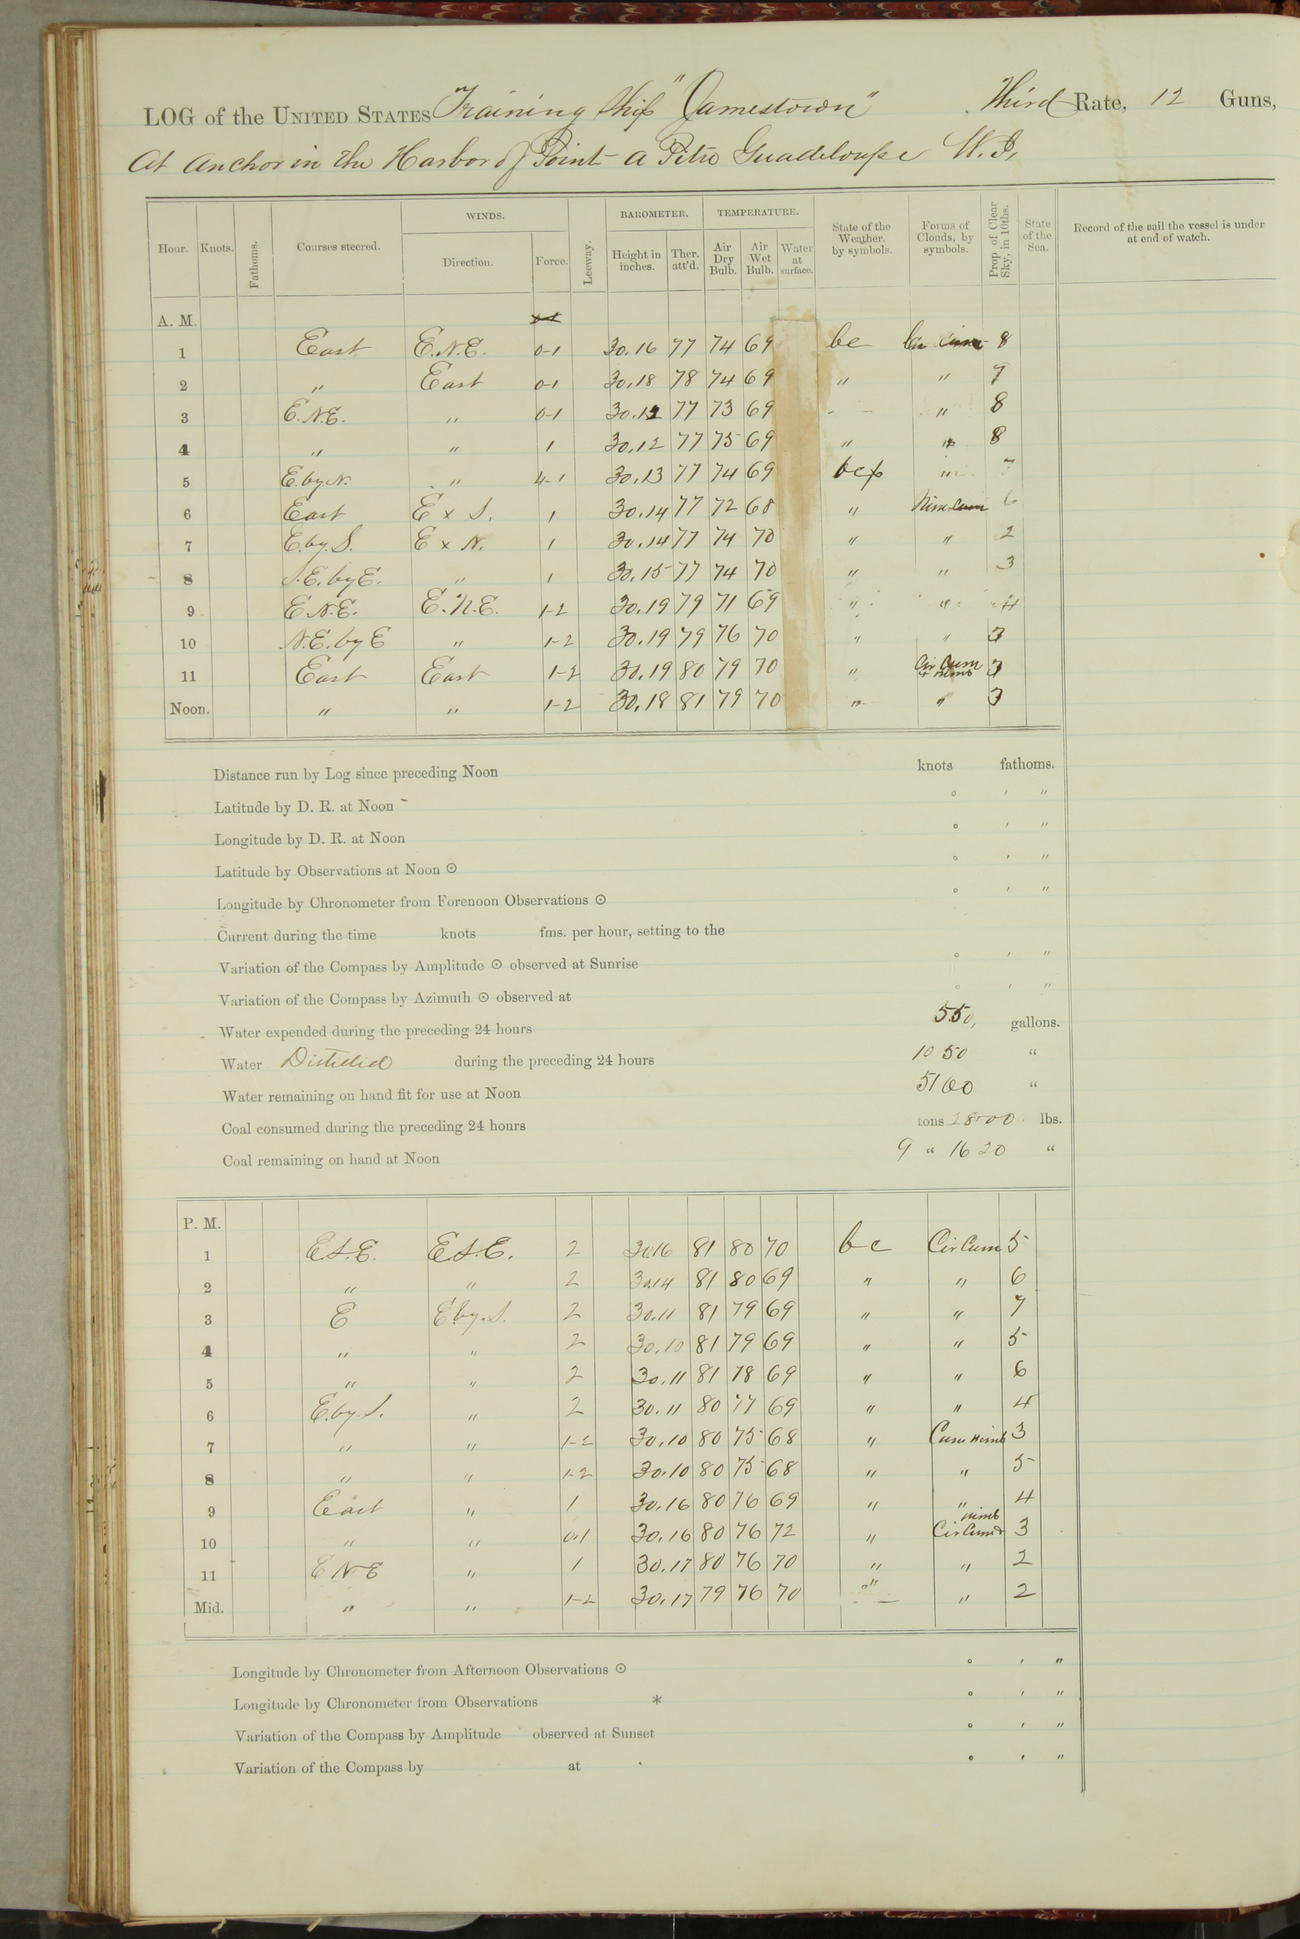 LOG of the UNITED STATES Training Ship "Jamestown" Third Rate, 12 Guns,
At Anchor in the Harbor of Point a Petre Guadeloupe W.I.
WINDS. BAROMETER. TEMPERATURE.
Hour. Knots. Fathoms. Courses steered. Direction. Force. Leeway. Height in inches. Ther. att'd. Air Dry Bulb. Air Wet Bulb. Water at surface. State of the Weather, by symbols. Forms of Clouds, by symbols. Prop. of Clear Sky, in 10ths. State of the Sea. Record of the sail the vessel is under at end of watch.
A. M.
1 East E.N.E. 0-1 30.16 77 74 69 bc Cir Cum 8
2 " East 0-1 30.18 78 74 69 " " 7
3 E.N.E. " 0-1 30.12 77 73 69 " 8
4 " " 1 30.12 77 75 69 " " 8
5 E. by N. " 4-1 30.13 77 74 69 bcp " 7
6 East E x S. 1 30.14 77 72 68 " Nim Cum 6
7 E. by S. E x N. 1 30.14 77 74 70 " " 2
8 S.E. by E. " 1 30.15 77 74 70 " " 3
9 E.N.E. E.N.E. 1-2 30.19 79 71 69 " " 4
10 N.E. by E " 1-2 30.19 79 76 70 " " 3
11 East East 1-2 30.19 80 79 70 " Cir Cum + Nimb 3
Noon. " " 1-2 30.18 81 79 70 " " 3
Distance run by Log since preceding Noon knots fathoms.
Latitude by D. R. at Noon ° ' "
Longitude by D. R. at Noon ° ' "
Latitude by Observations at Noon ☉ ° ' "
Longitude by Chronometer from Forenoon Observations ☉ ° ' "
Current during the time knots fms. per hour, setting to the
Variation of the Compass by Amplitude ☉ observed at Sunrise ° ' "
Variation of the Compass by Azimuth ☉ observed at ° ' "
Water expended during the preceding 24 hours 550, gallons.
Water Distilled during the preceding 24 hours 1050 "
Water remaining on hand fit for use at Noon 5100 "
Coal consumed during the preceding 24 hours tons 2800 lbs.
Coal remaining on hand at Noon 9 " 1620 "
P. M.
1 E.S.E. E.S.E. 2 30.16 81 80 70 bc Cir Cum 5
2 " " 2 30.14 81 80 69 " " 6
3 E E. by. S. 2 30.11 81 79 69 " " 7
4 " " 2 30.10 81 79 69 " " 5
5 " " 2 30.11 81 78 69 " " 6
6 E. by. S. " 2 30.11 80 77 69 " " 4
7 " " 1-2 30.10 80 75 68 " Cum Nimb 3
8 " " 1-2 30.10 80 75 68 " " 5
9 East " 1 30.16 80 76 69 " " 4
10 " " 0.1 30.16 80 76 72 " Cir Cum & Nimb 3
11 E N E " 1 30.17 80 76 70 " " 2
Mid. " " 1-2 30.17 79 76 70 " " 2
Longitude by Chronometer from Afternoon Observations ☉ ° ' "
Longitude by Chronometer from Observations * ° ' "
Variation of the Compass by Amplitude observed at Sunset ° ' "
Variation of the Compass by at ° ' "